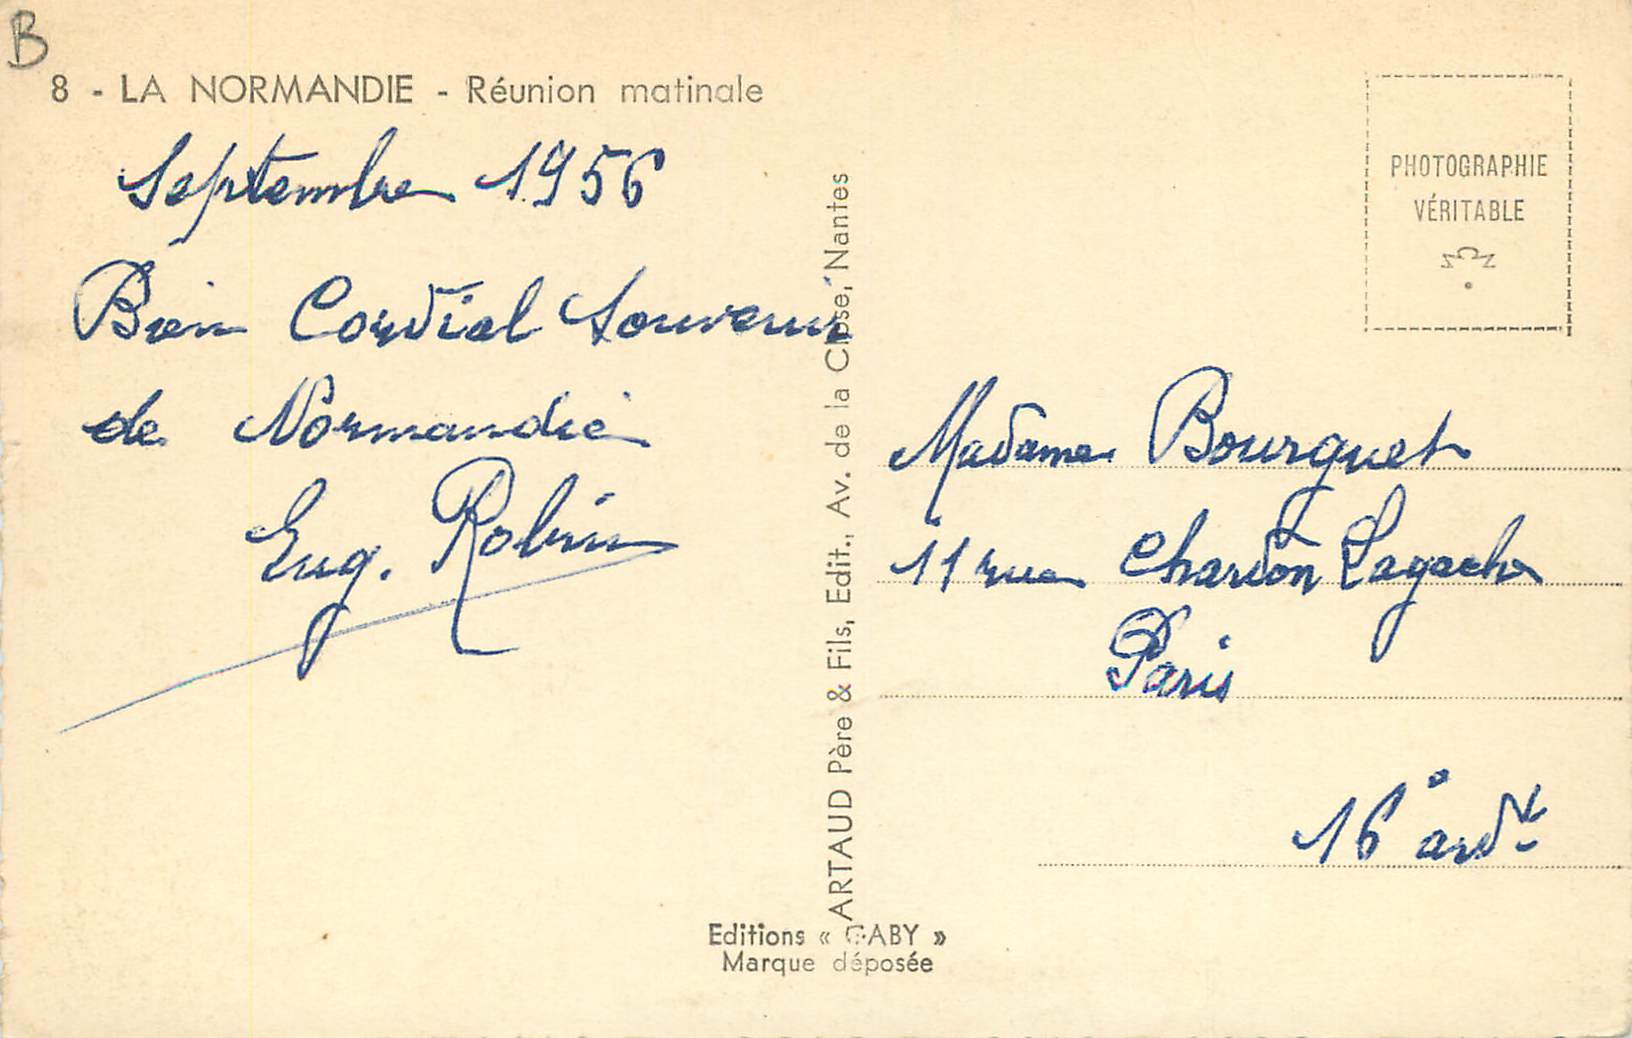 B
8 - LA NORMANDIE - Réunion matinale
Septembre 1956
Bien Cordial Souvenir
de Normandie
Eug. Robin
ARTAUD Père & Fils, Edit., Av. de la Close, Nantes
PHOTOGRAPHIE
VÉRITABLE
Madame Bourguet
11 rue Chardon Lagache
Paris
16° ardt
Editions « GABY »
Marque déposée